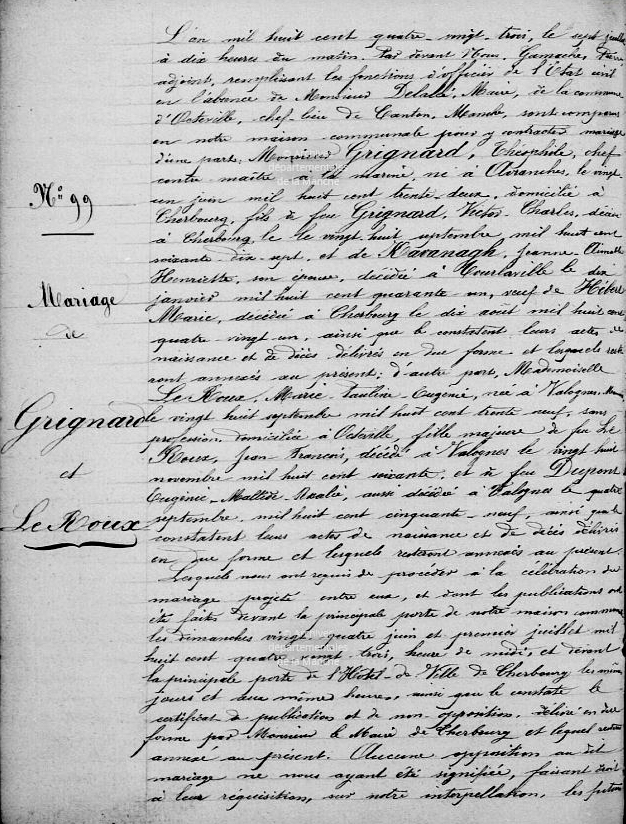 L'an mil huit cent quatre-vingt-trois, le sept juillet
à dix heures du matin. Par devant Nous, Gamache, Pierre
adjoint, remplissant les fonctions d'officier de l'État civil
en l'absence de Monsieur Delalé, Maire, de la commune
d'Octeville, chef-lieu de Canton, Manche, sont comparus
en notre maison communale pour y contracter mariage
d'une part, Monsieur Grignard, Théophile, chef
contre maître à la marine, né à Avranches, le vingt
un juin mil huit cent trente-deux, domicilié à
Cherbourg, fils de feu Grignard, Victor-Charles, décédé
à Cherbourg le le vingt-huit septembre mil huit cent
soixante-dix-sept, et de Kavanagh, Jeanne-Aimée
Henriette, son épouse, décédée à Tourlaville le dix
janvier mil huit cent quarante-un, veuf de Hébert
Marie, décédée à Cherbourg le dix aout mil huit cent
quatre-vingt-un, ainsi que le constatent leurs actes de
naissance et de décès délivrés en due forme et lesquels reste
ront annexés au présent; d'autre part, Mademoiselle
Le Roux, Marie-Pauline-Eugénie, née à Valognes, Manche
le vingt huit septembre mil huit cent trente neuf, sans
profession, domiciliée à Octeville, fille majeure de feu Le
Roux, Jean François, décédé à Valognes le vingt huit
novembre mil huit cent soixante, et de feu Dupont
Eugénie-Mathilde-Natalie, aussi décédée à Valognes le quatre
septembre mil huit cent cinquante-neuf, ainsi que le
constatent leurs actes de naissance et de décès délivrés
en due forme et lesquels resteront annexés au présent.
Lesquels nous ont requis de procéder à la célébration du
mariage projeté entre eux, et dont les publications ont
été faites devant la principale porte de notre maison commune
les dimanches vingt-quatre juin et premier juillet mil
huit cent quatre-vingt-trois, heure de midi, et devant
la principale porte de l'Hôtel-de-Ville de Cherbourg les mêmes
jours et aux même heures, ainsi que le constate le
certificat de publication et de non-opposition, délivré en due
forme par Monsieur le Maire de Cherbourg et lequel restera
annexé au présent. Aucune opposition au dit
mariage ne nous ayant été signifiée, faisant droit
à leur réquisition, sur notre interpellation, les futurs
No 99
Mariage
de
Grignard
et
Le Roux
départementales
de la Manche
départementales
de la Manche